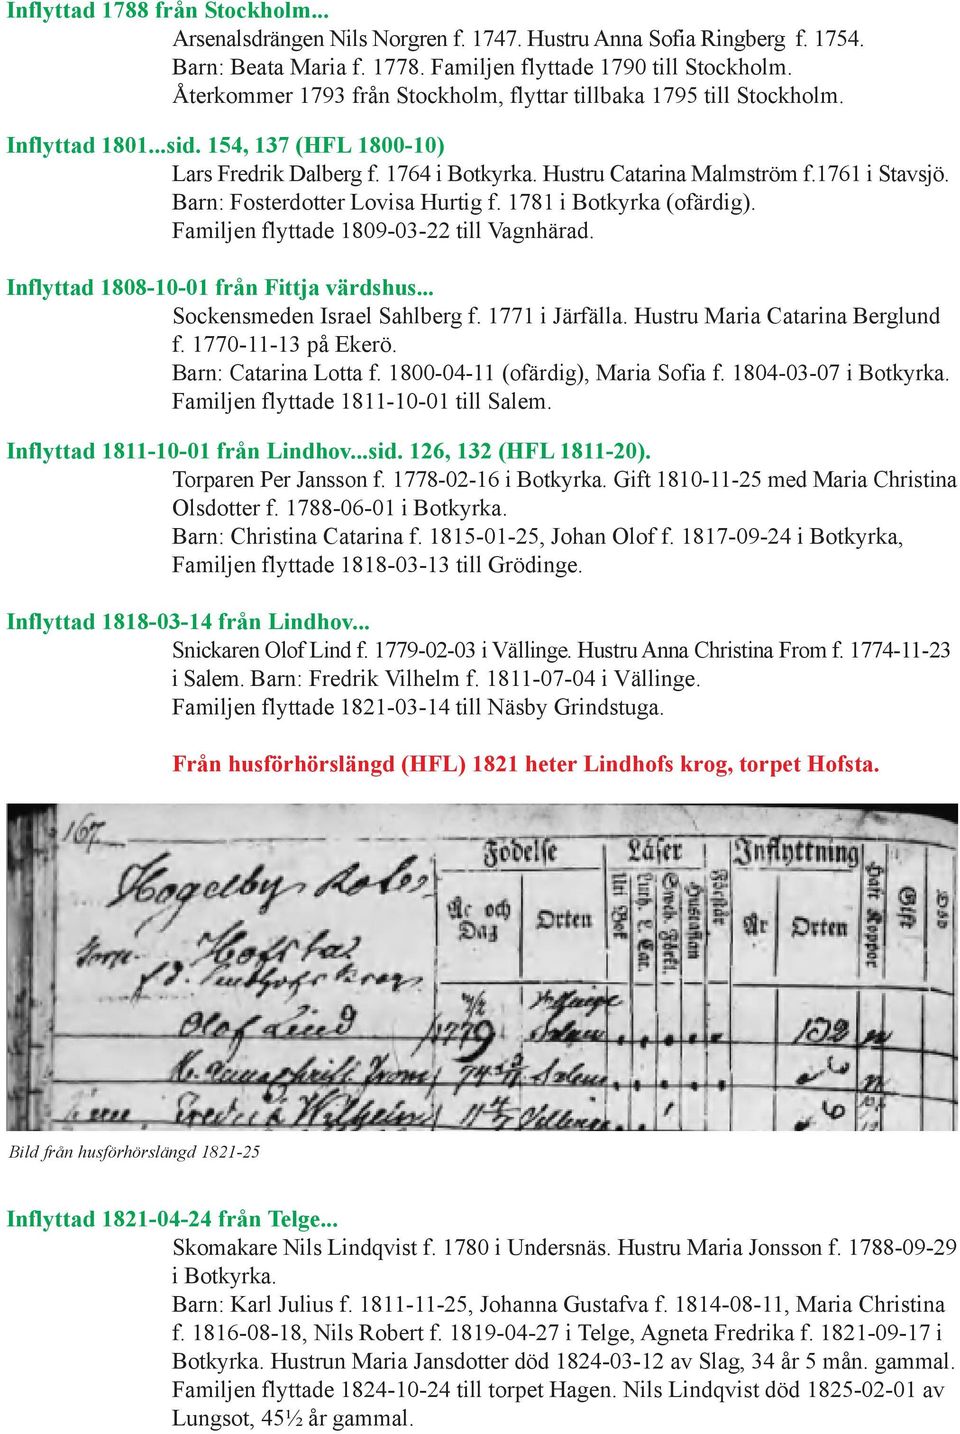 Inflyttad 1788 från Stockholm...
Arsenalsdrängen Nils Norgren f. 1747. Hustru Anna Sofia Ringberg f. 1754.
Barn: Beata Maria f. 1778. Familjen flyttade 1790 till Stockholm.
Återkommer 1793 från Stockholm, flyttar tillbaka 1795 till Stockholm.
Inflyttad 1801...sid. 154, 137 (HFL 1800-10)
Lars Fredrik Dalberg f. 1764 i Botkyrka. Hustru Catarina Malmström f.1761 i Stavsjö.
Barn: Fosterdotter Lovisa Hurtig f. 1781 i Botkyrka (ofärdig).
Familjen flyttade 1809-03-22 till Vagnhärad.
Inflyttad 1808-10-01 från Fittja värdshus...
Sockensmeden Israel Sahlberg f. 1771 i Järfälla. Hustru Maria Catarina Berglund
f. 1770-11-13 på Ekerö.
Barn: Catarina Lotta f. 1800-04-11 (ofärdig), Maria Sofia f. 1804-03-07 i Botkyrka.
Familjen flyttade 1811-10-01 till Salem.
Inflyttad 1811-10-01 från Lindhov...sid. 126, 132 (HFL 1811-20).
Torparen Per Jansson f. 1778-02-16 i Botkyrka. Gift 1810-11-25 med Maria Christina
Olsdotter f. 1788-06-01 i Botkyrka.
Barn: Christina Catarina f. 1815-01-25, Johan Olof f. 1817-09-24 i Botkyrka,
Familjen flyttade 1818-03-13 till Grödinge.
Inflyttad 1818-03-14 från Lindhov...
Snickaren Olof Lind f. 1779-02-03 i Vällinge. Hustru Anna Christina From f. 1774-11-23
i Salem. Barn: Fredrik Vilhelm f. 1811-07-04 i Vällinge.
Familjen flyttade 1821-03-14 till Näsby Grindstuga.
Från husförhörslängd (HFL) 1821 heter Lindhofs krog, torpet Hofsta.
167.
Födelse Läser Inflyttning
Hogelby Rote
År och Dag Orten Uti Bok Luth. L. Cat. Hustaflan Förstår År Orten Haft Koppor Gift Död
Torp. Hofsta
f.d. Lindhofs krog
Olof Lind 1779 3/2 Salem 132 n
H. Anna Christ. From 74 Salem
Fredric Wilhelm 11 4/7 Vellinge
Bild från husförhörslängd 1821-25
Inflyttad 1821-04-24 från Telge...
Skomakare Nils Lindqvist f. 1780 i Undersnäs. Hustru Maria Jonsson f. 1788-09-29
i Botkyrka.
Barn: Karl Julius f. 1811-11-25, Johanna Gustafva f. 1814-08-11, Maria Christina
f. 1816-08-18, Nils Robert f. 1819-04-27 i Telge, Agneta Fredrika f. 1821-09-17 i
Botkyrka. Hustrun Maria Jansdotter död 1824-03-12 av Slag, 34 år 5 mån. gammal.
Familjen flyttade 1824-10-24 till torpet Hagen. Nils Lindqvist död 1825-02-01 av
Lungsot, 45½ år gammal.